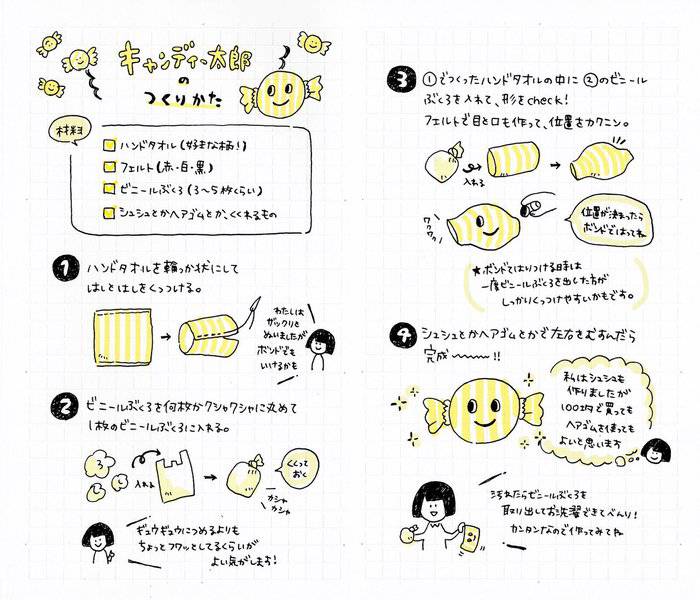 キャンディー太郎
の
つくりかた
材料
ハンドタオル(好きな柄!)
フェルト(赤・白・黒)
ビニールぶくろ(3〜5枚くらい)
シュシュとかヘアゴムとか、くくれるもの
1 ハンドタオルを輪っか状にして
はしとはしをくっつける。
わたしは
ザックリと
ぬいましたが
ボンドでも
いけるかも
2 ビニールぶくろを何枚かクシャクシャに丸めて
1枚のビニールぶくろに入れる。
入れる
くくって
おく
カシャ
カシャ
ギュウギュウにつめるよりも
ちょっとフワッとしてるくらいが
よい気がします!
3 ①でつくったハンドタオルの中に②のビニール
ぶくろを入れて、形をcheck!
フェルトで目と口も作って、位置をカクニン。
入れる
ワクワク
位置が決まったら
ボンドではってね
★ボンドではりつける時は
一度ビニールぶくろを出した方が
しっかりくっつけやすいかもです。
4 シュシュとかヘアゴムとかで左右をむすんだら
完成〜〜!!
私はシュシュも
作りましたが
100均で買っても
ヘアゴムを使っても
よいと思います
汚れたらビニールぶくろを
取り出してお洗濯できてべんり!
カンタンなので作ってみてね